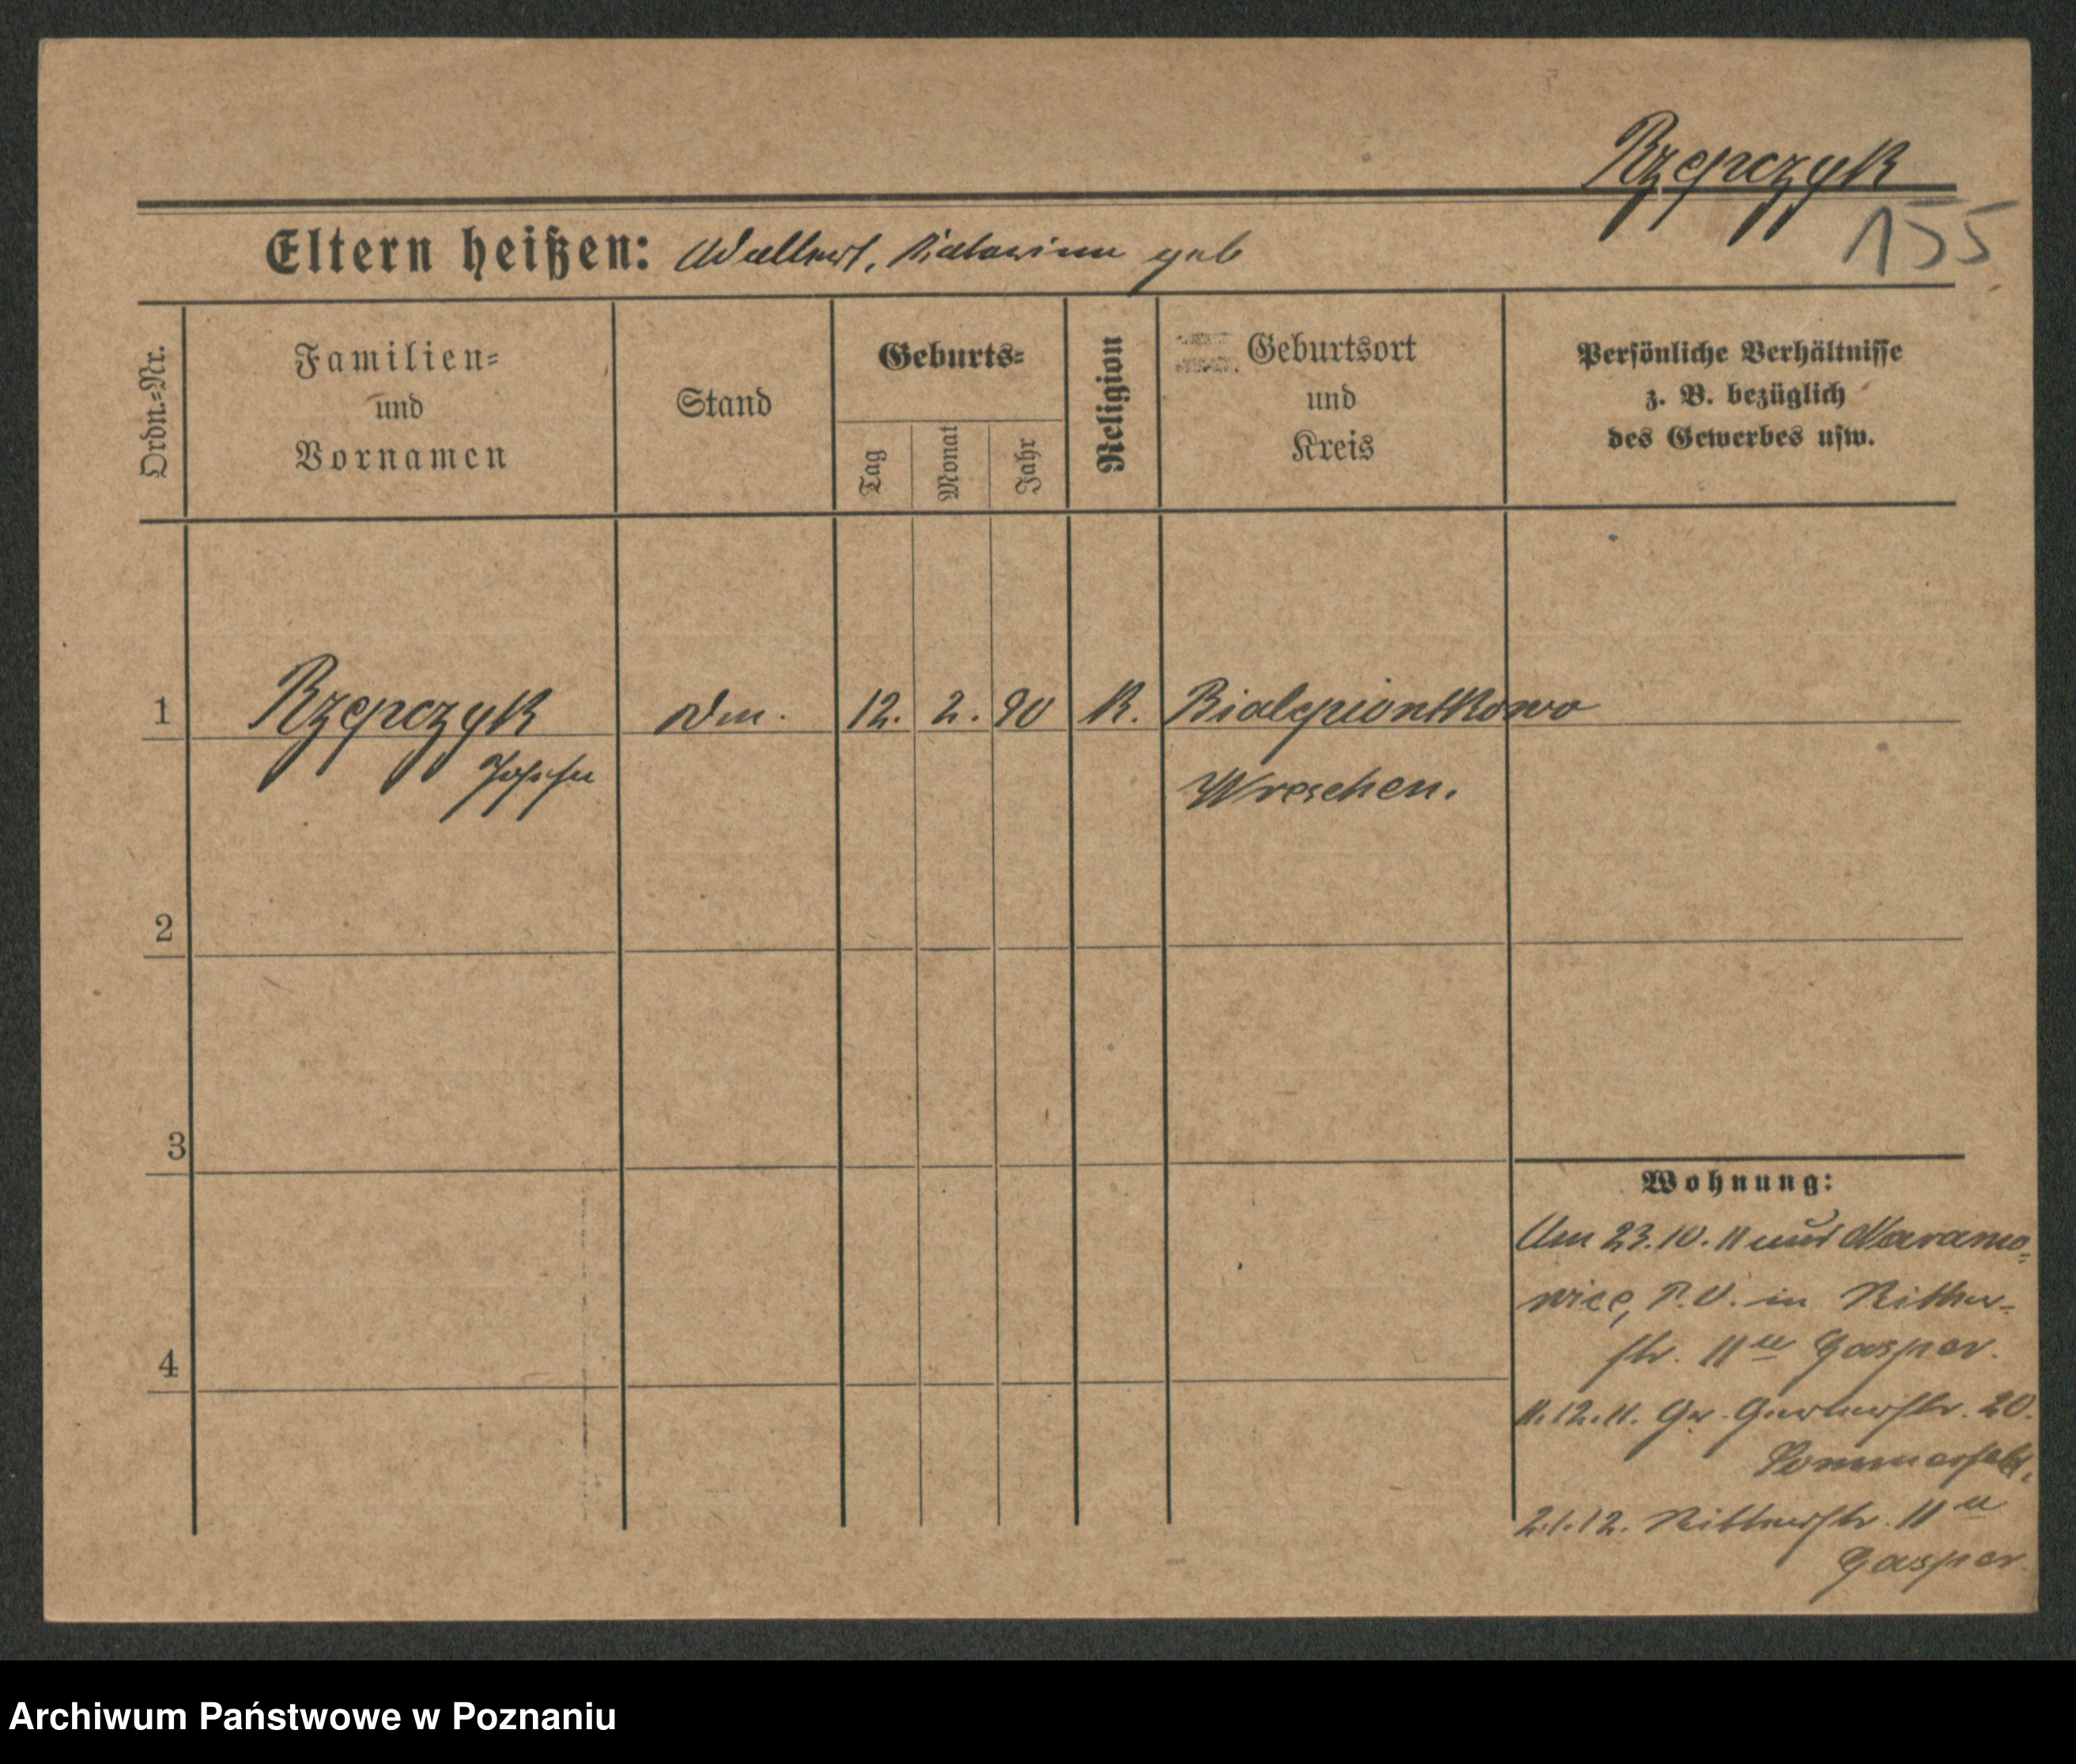 Rzepczyk
155
Eltern heißen: Adalbert, Katarina geb
Ordn.=Nr.
Familien=
und
Vornamen
Stand
Geburts=
Tag
Monat
Jahr
Religion
Geburtsort
und
Kreis
Persönliche Verhältnisse
z. B. bezüglich
des Gewerbes usw.
1 Rzepczyk 12. 2. 90 K. Bialepiontkowo
Josefa Wreschen.
2
3
Wohnung:
Am 23.10.11 aus Naramo-
wice, P.O. in Ritter-
4
str. 11 Gasper.
11.12.11. Gr. Gerberstr. 20.
Sommerfeld.
2.1.12. Ritterstr. 11
Gasper.
Archiwum Państwowe w Poznaniu